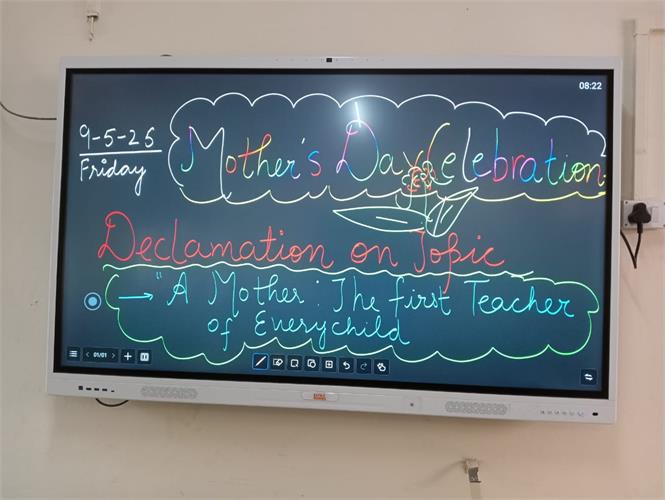 08:22
9-5-25
Friday
Mother's Day Celebration
Declamation on Topic
→ "A Mother: The first Teacher
of Everychild
01/01